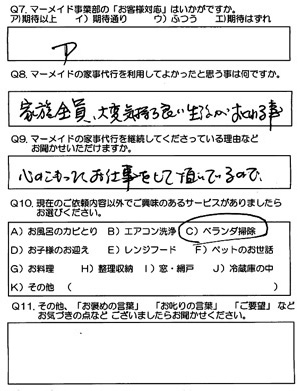 Q7. マーメイド事業部の「お客様対応」はいかがですか。
ア)期待以上 イ)期待通り ウ)ふつう エ)期待はずれ
ア
Q8. マーメイドの家事代行を利用してよかったと思う事は何ですか。
家族全員、大変気持ち良い生活がおくれる事
Q9. マーメイドの家事代行を継続してくださっている理由など
お聞かせいただけますか。
心のこもった、お仕事をして頂いているので、
Q10. 現在のご依頼内容以外でご興味のあるサービスがありましたら
お選びください。
A) お風呂のカビとり B) エアコン洗浄 C) ベランダ掃除
D) お子様のお迎え E) レンジフード F) ペットのお世話
G) お料理 H) 整理収納 I) 窓・網戸 J) 冷蔵庫の中
K) その他 ( )
Q11. その他、「お褒めの言葉」 「お叱りの言葉」 「ご要望」 など
お気づきの点など ございましたらお聞かせください。